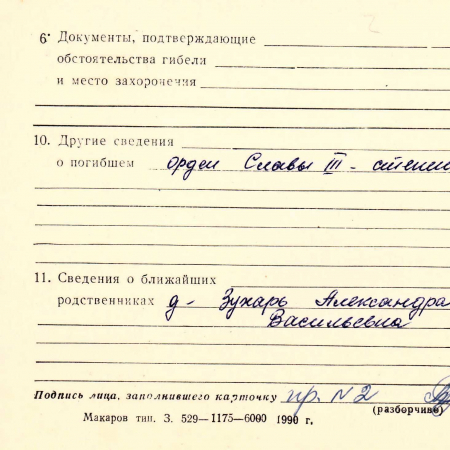 6. Документы, подтверждающие
обстоятельства гибели
и место захоронения
10. Другие сведения
о погибшем орден Славы III - степени
11. Сведения о ближайших
родственниках д- Зухарь Александра
Васильевна
Подпись лица, заполнившего карточку пр. N2
(разборчиво)
Макаров тип. З. 529—1175—6000 1990 г.